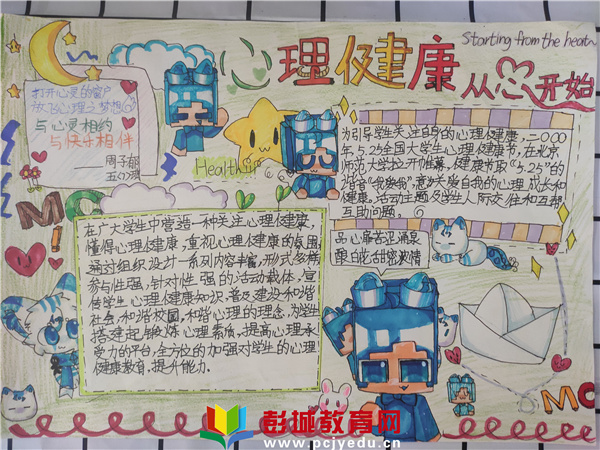 Starting from the heath
心理健康
从心开始
打开心灵的窗户
放飞心理之梦想
与心灵相约
与快乐相伴
周子郁
Health up
为引导学生关注自身的心理健康,二〇〇〇
年5.25全国大学生心理健康节,在北京
师范大学拉开帷幕,健康节取“5.25”的
谐音“我爱我”意为关爱自我的心理成长和
健康。活动主题及学生人际交往和互帮
互助问题。
在广大学生中营造一种关注心理健康,
懂得心理健康,重视心理健康的氛围,
通过组织设计一系列内容丰富,形式多样
参与性强,针对性强的活动载体,宣
传学生心理健康知识,普及建设和谐
社会,和谐校园,和谐心理的理念,为学生
搭建起锻炼心理素质,提高心理承
受力的平台,全方位的加强对学生的心理
健康教育,提升能力。
品心靡苦涩涌泉
酿自此甜密激情
MO
MO
彭城教育网
www.pcjyedu.cn